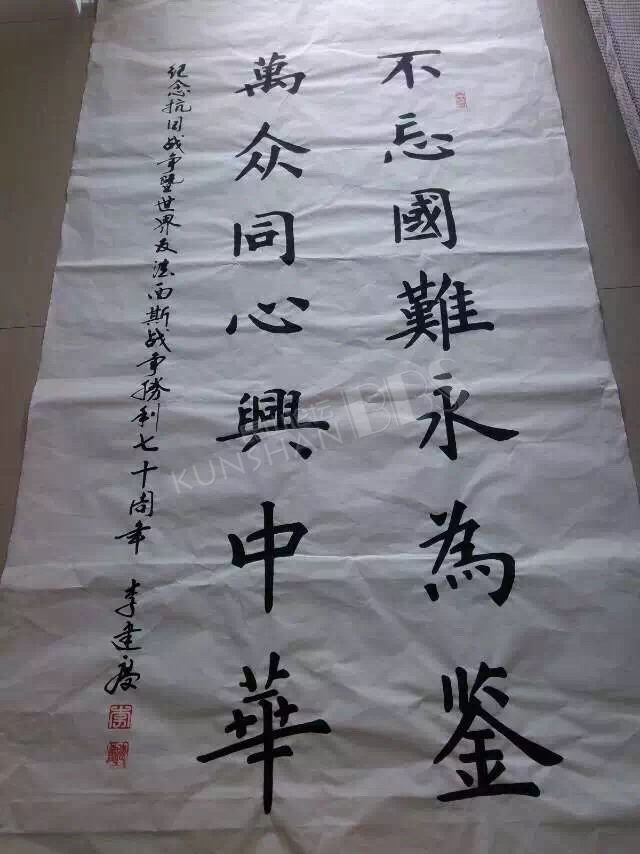 不忘國難永為鉴
萬众同心興中華
纪念抗日战争暨世界反法西斯战争勝利七十周年 李建
KUNSHAN BBS